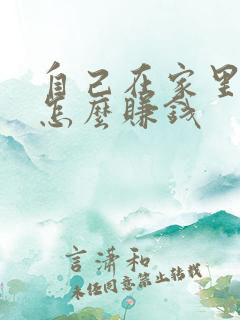 自己在家里
怎麽赚钱
言潇和
未经同意禁止转载